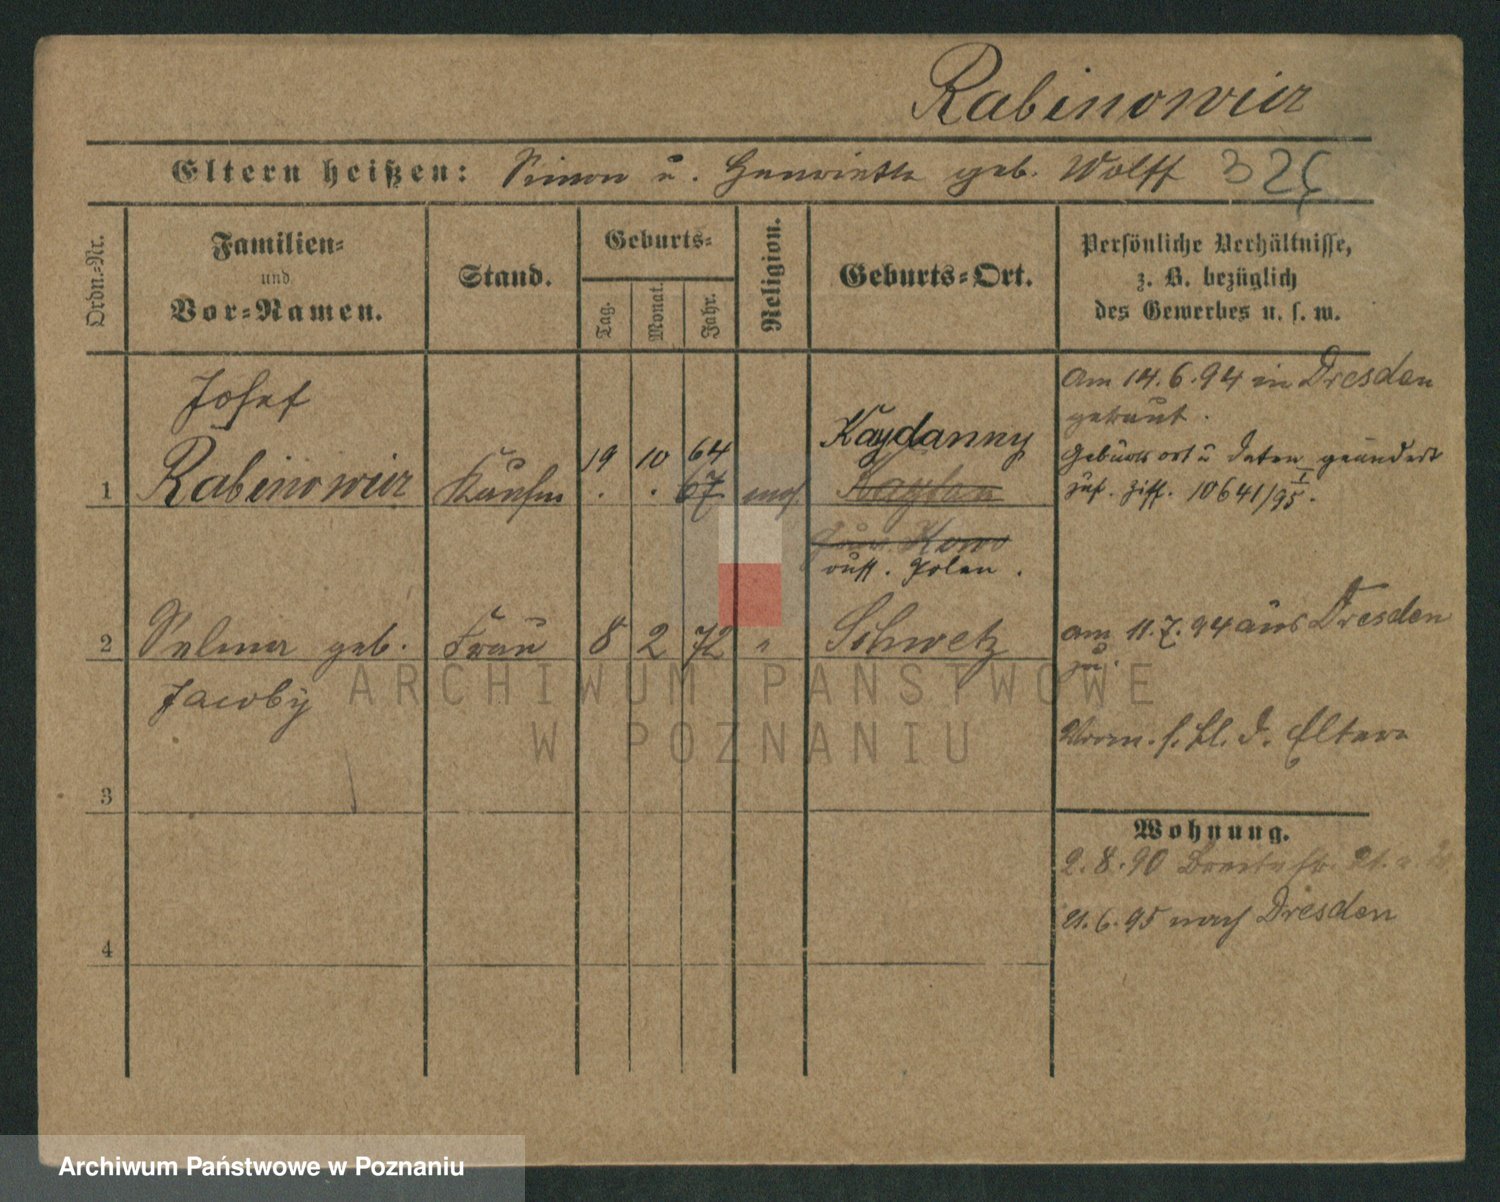 Rabinowicz
Eltern heißen: Simon u. Henriette geb. Wolff 325
Ordn.-Nr.
Familien-
und
Vor-Namen.
Stand.
Geburts-
Tag.
Monat.
Jahr.
Religion.
Geburts-Ort.
Persönliche Verhältnisse,
z. B. bezüglich
des Gewerbes u. s. w.
Josef
am 14.6.94 in Dresden
getraut.
Kaydanny
Geburtsort u Daten geändert
19 10 64
1 Rabinowicz Kaufm . . 67 mos. Kaydan
zuf. Ziff. 10641/95 I.
Kowno
russ. Polen.
2 Selma geb. Frau 8 2 72 " Schwetz
am 11.7.94 aus Dresden
zu.
Jacoby
Vorm. s. Bl. d. Eltern
3
Wohnung.
2.8.90 Breitestr. 21.
21.6.95 nach Dresden
4
ARCHIWUM PAŃSTWOWE
W POZNANIU
Archiwum Państwowe w Poznaniu